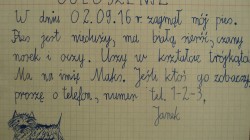 OGŁOSZENIE
W dniu 02.09.16 r. zaginął mój pies.
Pies jest nieduży, ma białą sierść, czarny
nosek i oczy. Uszy w kształcie trójkąta.
Ma na imię Maks. Jeśli ktoś go zobaczy
proszę o telefon, numer tel. 1-2-3.
Janek